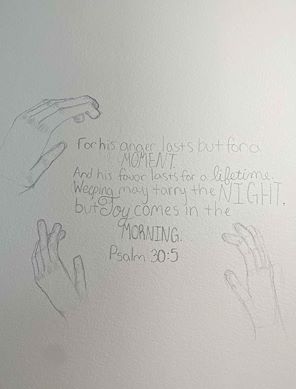 For his anger lasts but for a
MOMENT.
And his favor lasts for a lifetime.
Weeping may tarry the NIGHT.
but Joy comes in the
MORNING.
Psalm 30:5